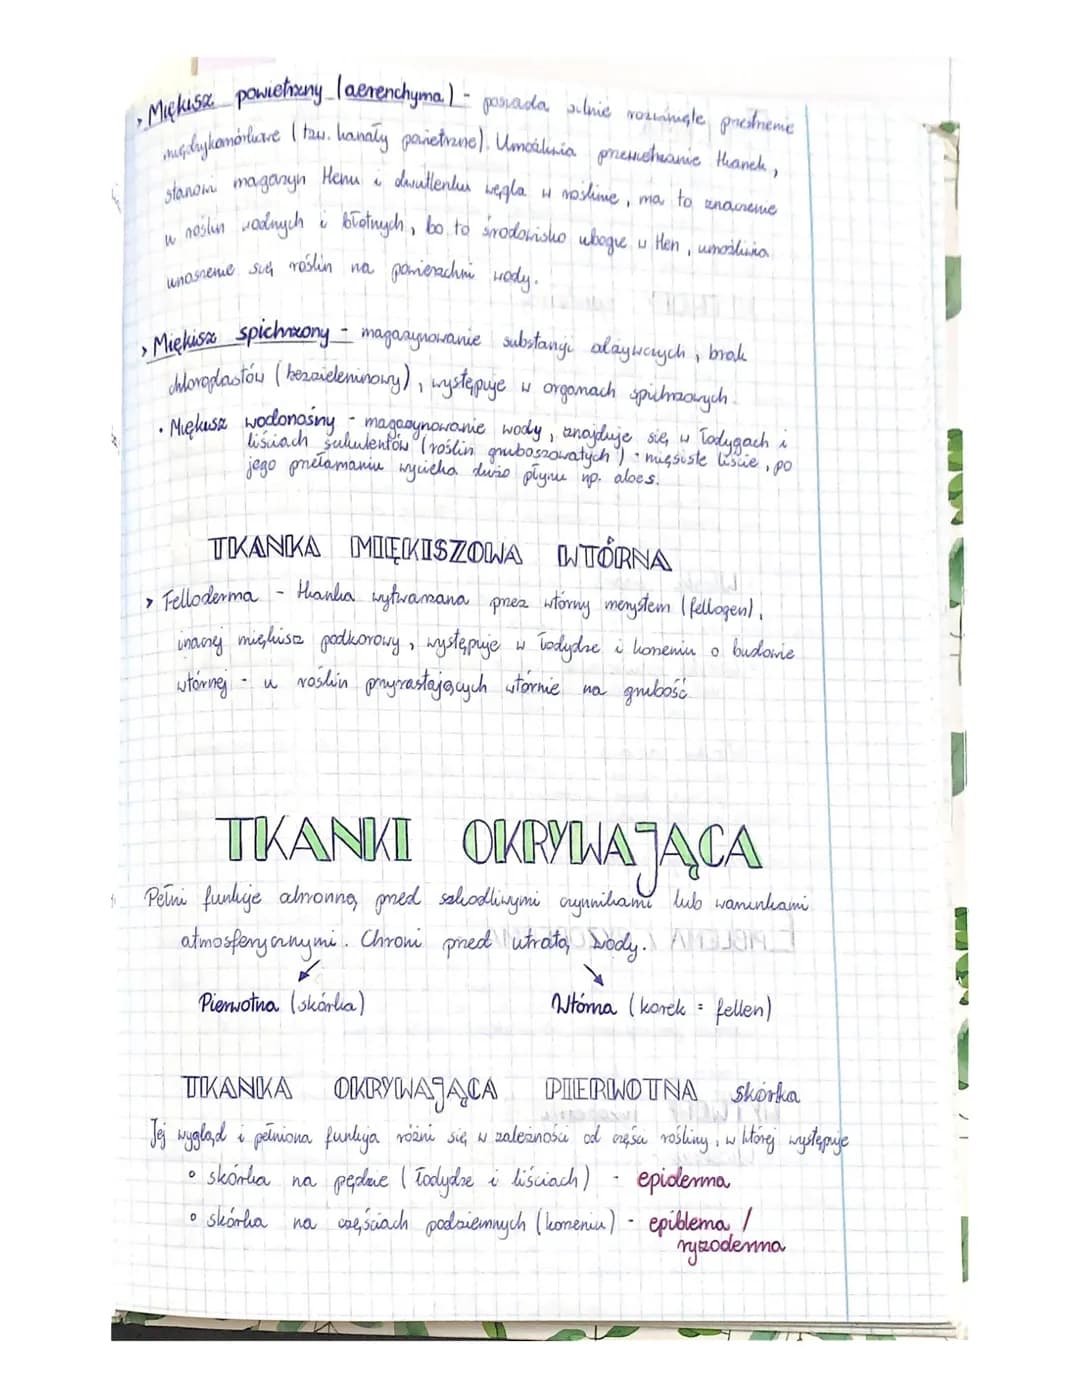 > Miękisz powietrzny (aerenchyma) - posiada silnie rozwinięte przestrzenie
międzykomórkowe (tzw. kanały powietrzne). Umożliwia przewietrzanie tkanek,
stanowi magazyn tlenu i dwutlenku węgla w roślinie, ma to znaczenie
u roślin wodnych i błotnych, bo to środowisko ubogie w tlen, umożliwia
unoszenie się roślin na powierzchni wody.
> Miękisz spichrzony - magazynowanie substancji odżywczych, brak
chloroplastów (bezzieleninowy), występuje w organach spichrzowych.
• Miękisz wodonośny - magazynowanie wody, znajduje się w łodygach i
liściach sukulentów (roślin gruboszowatych) - mięsiste liście, po
jego przełamaniu wycieka dużo płynu np. aloes.
TKANKA MIĘKISZOWA WTÓRNA
> Felloderma - tkanka wytwarzana przez wtórny merystem (fellogen),
inaczej miękisz podkorowy, występuje w łodydze i korzeniu o budowie
wtórnej - u roślin przyrastających wtórnie na grubość
TKANKI OKRYWAJĄCA
Pełni funkcje ochronną przed szkodliwymi czynnikami lub warunkami
atmosferycznymi. Chroni przed utratą wody.
Pierwotna (skórka)
Wtórna (korek = fellen)
TKANKA OKRYWAJĄCA PIERWOTNA skórka
Jej wygląd i pełniona funkcja różni się w zależności od części rośliny, w której występuje
° skórka na pędzie (łodydze i liściach) - epiderma
° skórka na częściach podziemnych (korzeniu) - epiblema /
ryzoderma